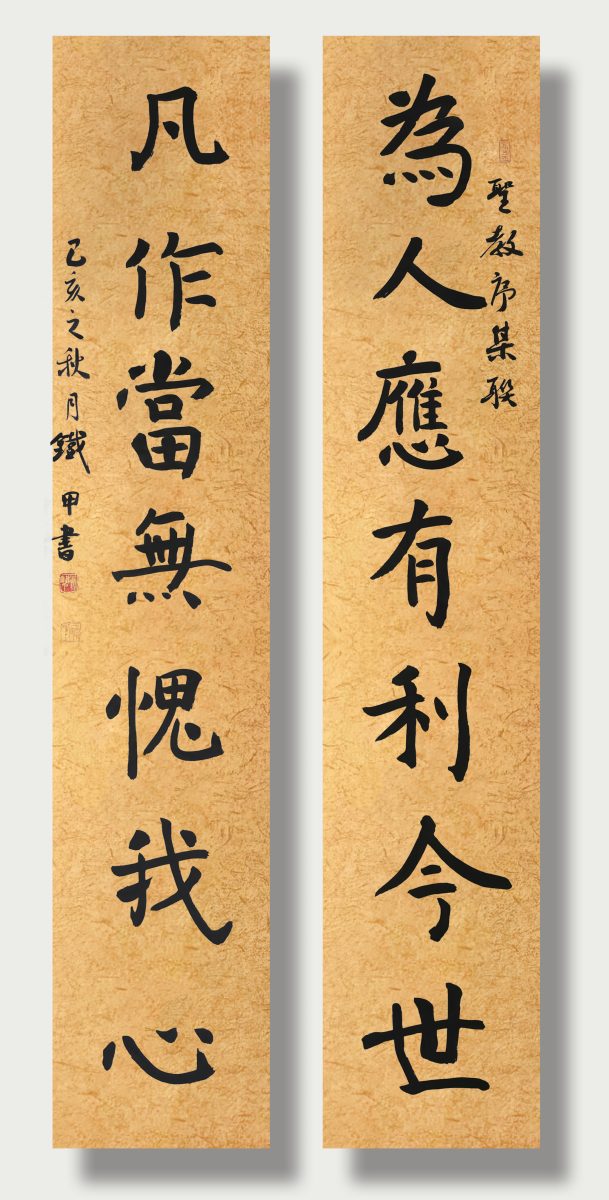 聖教序集聯
為人應有利今世
凡作當無愧我心
己亥之秋月鐵甲書